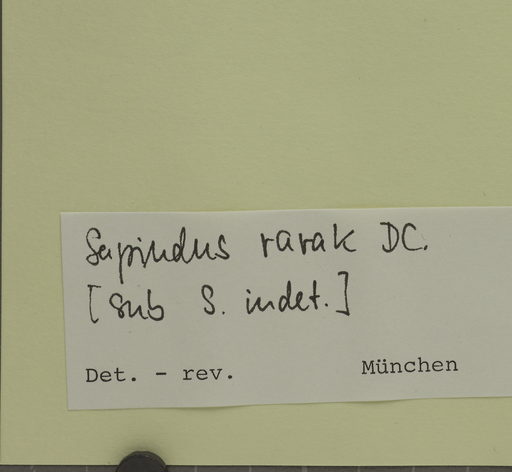 Sapindus rarak DC.
[sub S. indet.]
Det. - rev. München